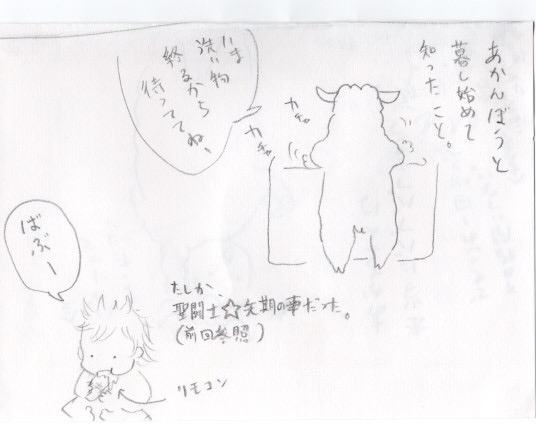 あかんぼうと
暮し始めて
知ったこと。
いま
洗い物
終るから
待っててね、
カチャ
カチャ
ばぶー
たしか、
聖闘士☆矢期の事だった。
(前回参照)
リモコン